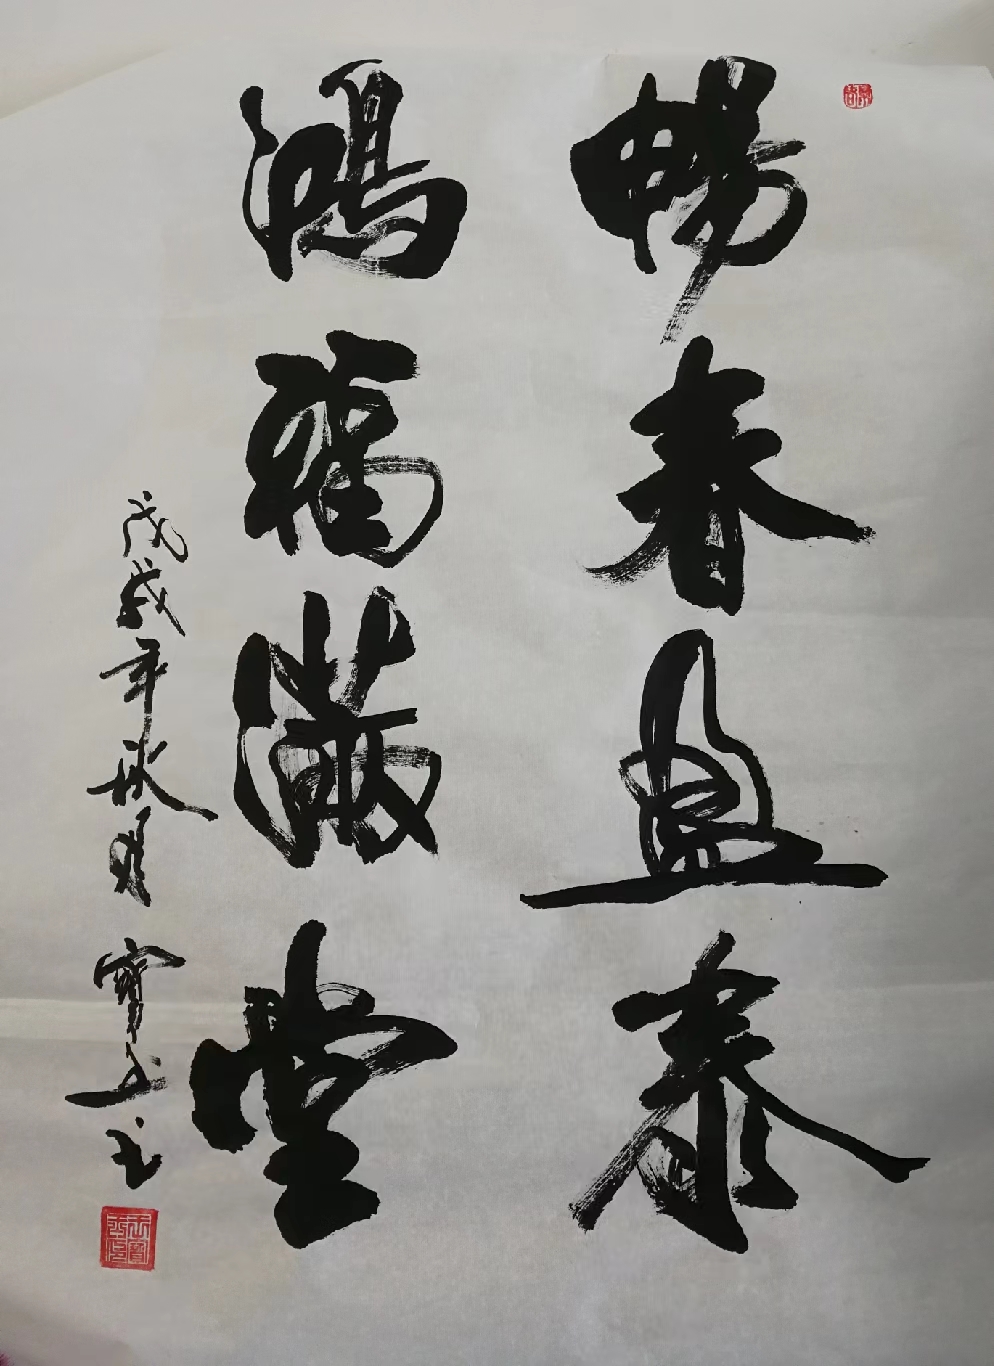 畅春盈泰
鸿福满堂
戊戌年秋月 宝玉书